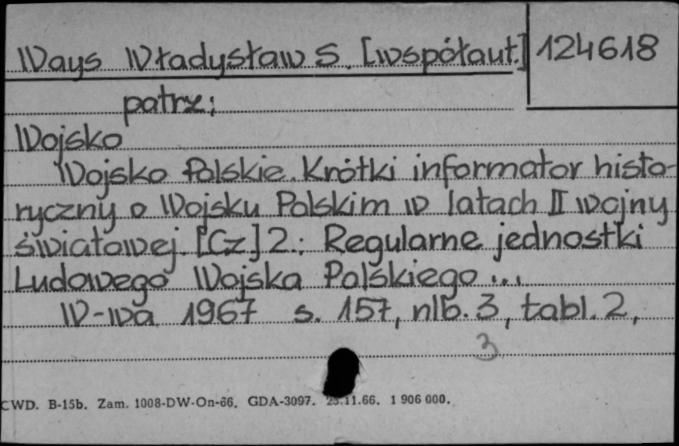 Ways Władysław S. [współaut.] 124618
patrz:
Wojsko
Wojsko Polskie. Krótki informator histo-
ryczny o Wojsku Polskim w latach II wojny
światowej. [Cz] 2.: Regularne jednostki
Ludowego Wojska Polskiego...
W-wa 1967 s. 157, nlb. 3, tabl. 2,
3
CWD. B-15b. Zam. 1008-DW-On-66. GDA-3097. 25.11.66. 1 906 000.